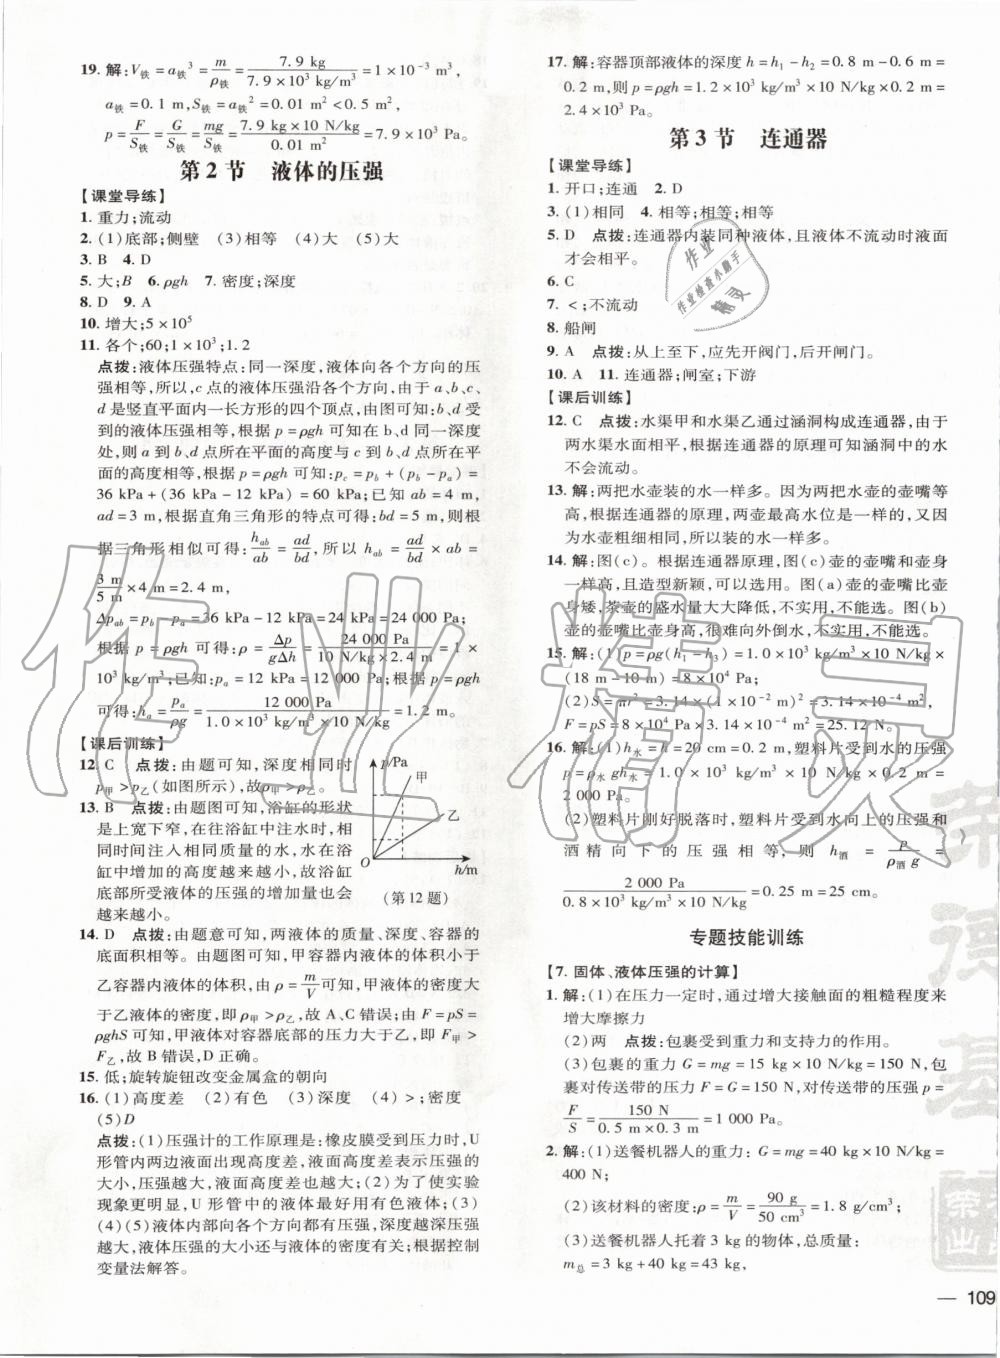 19. 解:V铁=a铁³=m/ρ铁=7.9 kg/7.9×10³ kg/m³=1×10⁻³ m³,
a铁=0.1 m,S铁=a铁²=0.01 m²<0.5 m²,
p=F/S铁=G/S铁=mg/S铁=7.9 kg×10 N/kg/0.01 m²=7.9×10³ Pa。
第2节 液体的压强
【课堂导练】
1. 重力;流动
2. (1)底部;侧壁 (3)相等 (4)大 (5)大
3. B 4. D
5. 大;B 6. ρgh 7. 密度;深度
8. D 9. A
10. 增大;5×10⁵
11. 各个;60;1×10³;1.2
点拨:液体压强特点:同一深度,液体向各个方向的压
强相等,所以,c点的液体压强沿各个方向,由于a、b、c、
d是竖直平面内一长方形的四个顶点,由图可知:b、d受
到的液体压强相等,根据p=ρgh可知在b、d同一深度
处,则a到b、d点所在平面的高度与c到b、d点所在平
面的高度相等,根据p=ρgh可知:pc=pb+(pb-pa)=
36 kPa+(36 kPa-12 kPa)=60 kPa;已知ab=4 m,
ad=3 m,根据直角三角形的特点可得:bd=5 m,则根
据三角形相似可得:hab/ab=ad/bd,所以hab=ad/bd×ab=
3 m/5 m×4 m=2.4 m,
Δpab=pb-pa=36 kPa-12 kPa=24 kPa=24 000 Pa;
根据p=ρgh可得:ρ=Δp/gΔh=24 000 Pa/10 N/kg×2.4 m=1×
10³ kg/m³;已知:pa=12 kPa=12 000 Pa,根据p=ρgh
可得:ha=pa/ρg=12 000 Pa/1.0×10³ kg/m³×10 N/kg=1.2 m。
【课后训练】
12. C 点拨:由题可知,深度相同时
p甲>p乙(如图所示),故ρ甲>ρ乙。
13. B 点拨:由题图可知,浴缸的形状
是上宽下窄,在往浴缸中注水时,相
同时间注入相同质量的水,水在浴缸
中增加的高度越来越小。故浴缸
底部所受液体的压强的增加量也会
越来越小。
p/Pa
甲
乙
O
h/m
(第12题)
14. D 点拨:由题意可知,两液体的质量、深度、容器的
底面积相等。由题图可知,甲容器内液体的体积小于
乙容器内液体的体积,由ρ=m/V可知,甲液体的密度大
于乙液体的密度,即ρ甲>ρ乙,故A、C错误;由F=pS=
ρghS可知,甲液体对容器底部的压力大于乙,即F甲>
F乙,故B错误,D正确。
15. 低;旋转旋钮改变金属盒的朝向
16. (1)高度差 (2)有色 (3)深度 (4)>;密度
(5)D
点拨:(1)压强计的工作原理是:橡皮膜受到压力时,U
形管内两边液面出现高度差,液面高度差表示压强的
大小,压强越大,液面高度差越大;(2)为了使实验
现象更明显,U形管中的液体最好用有色液体;(3)
(4)(5)液体内部向各个方向都有压强,深度越深压强
越大,液体压强的大小还与液体的密度有关;根据控制
变量法解答。
17. 解:容器顶部液体的深度h=h₁-h₂=0.8 m-0.6 m=
0.2 m,则p=ρgh=1.2×10³ kg/m³×10 N/kg×0.2 m=
2.4×10³ Pa。
第3节 连通器
【课堂导练】
1. 开口;连通 2. D
3. (1)相同 4. 相等;相等;相等
5. D 点拨:连通器内装同种液体,且液体不流动时液面
才会相平。
6. C
7. <;不流动
8. 船闸
9. A 点拨:从上至下,应先开阀门,后开闸门。
10. A 11. 连通器;闸室;下游
【课后训练】
12. C 点拨:水渠甲和水渠乙通过涵洞构成连通器,由于
两水渠水面相平,根据连通器的原理可知涵洞中的水
不会流动。
13. 解:两把水壶装的水一样多。因为两把水壶的壶嘴等
高,根据连通器的原理,两壶最高水位是一样的,又因
为水壶粗细相同,所以装的水一样多。
14. 解:图(c)。根据连通器原理,图(c)壶的壶嘴和壶身
一样高,且造型新颖,可以选用。图(a)壶的壶嘴比壶
身矮,茶壶的盛水量大大降低,不实用,不能选。图(b)
壶的壶嘴比壶身高,很难向外倒水,不实用,不能选。
15. 解:(1)p=ρg(h₁-h₃)=1.0×10³ kg/m³×10 N/kg×
(18 m-10 m)=8×10⁴ Pa;
(2)S=πr²=3.14×(1×10⁻² m)²=3.14×10⁻⁴ m²,
F=pS=8×10⁴ Pa×3.14×10⁻⁴ m²=25.12 N。
16. 解:(1)h水=h=20 cm=0.2 m,塑料片受到水的压强
p=ρ水gh水=1.0×10³ kg/m³×10 N/kg×0.2 m=
2 000 Pa;
(2)塑料片刚好脱落时,塑料片受到水向上的压强和
酒精向下的压强相等,则h酒=p/ρ酒g=
2 000 Pa/0.8×10³ kg/m³×10 N/kg=0.25 m=25 cm。
专题技能训练
【7. 固体、液体压强的计算】
1. 解:(1)在压力一定时,通过增大接触面的粗糙程度来
增大摩擦力
(2)两 点拨:包裹受到重力和支持力的作用。
(3)包裹的重力G=mg=15 kg×10 N/kg=150 N,包
裹对传送带的压力F=G=150 N,对传送带的压强p=
F/S=150 N/0.5 m×0.3 m=1 000 Pa。
2. 解:(1)送餐机器人的重力:G=mg=40 kg×10 N/kg=
400 N;
(2)该材料的密度:ρ=m/V=90 g/50 cm³=1.8 g/cm³;
(3)送餐机器人托着3 kg的物体,总质量:
m总=3 kg+40 kg=43 kg,
— 109
作业
作业检查小助手
精灵
作业精灵